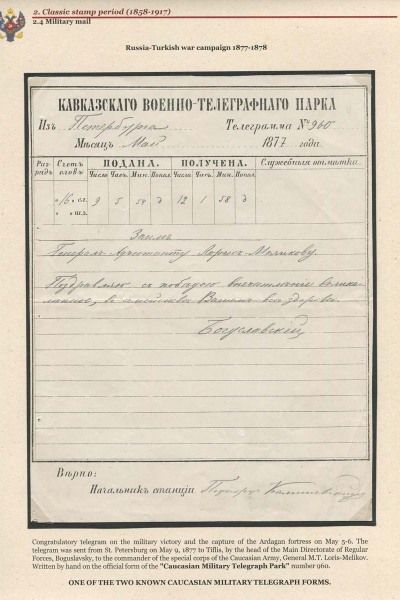 2. Classic stamp period (1858-1917)
2.4 Military mail
Russia-Turkish war campaign 1877-1878
КАВКАЗСКАГО ВОЕННО-ТЕЛЕГРАФНАГО ПАРКА
Изъ Петербурга Телеграмма № 960
Мѣсяцъ Май 1877 года.
Раз-рядъ Счетъ словъ ПОДАНА. ПОЛУЧЕНА. Служебныя отмѣтки.
Число Час. Мин. Попол. Число Час. Мин. Попол.
16 сл. 9 5 54 д 12 1 58 д
Генералъ Адъютанту Лорисъ-Меликову.
Поздравляю съ побѣдою
Богуславскій
Вѣрно:
Начальникъ станціи
Congratulatory telegram on the military victory and the capture of the Ardagan fortress on May 5-6. The
telegram was sent from St. Petersburg on May 9, 1877 to Tiflis, by the head of the Main Directorate of Regular
Forces, Boguslavsky, to the commander of the special corps of the Caucasian Army, General M.T. Loris-Melikov.
Written by hand on the official form of the "Caucasian Military Telegraph Park" number 960.
ONE OF THE TWO KNOWN CAUCASIAN MILITARY TELEGRAPH FORMS.